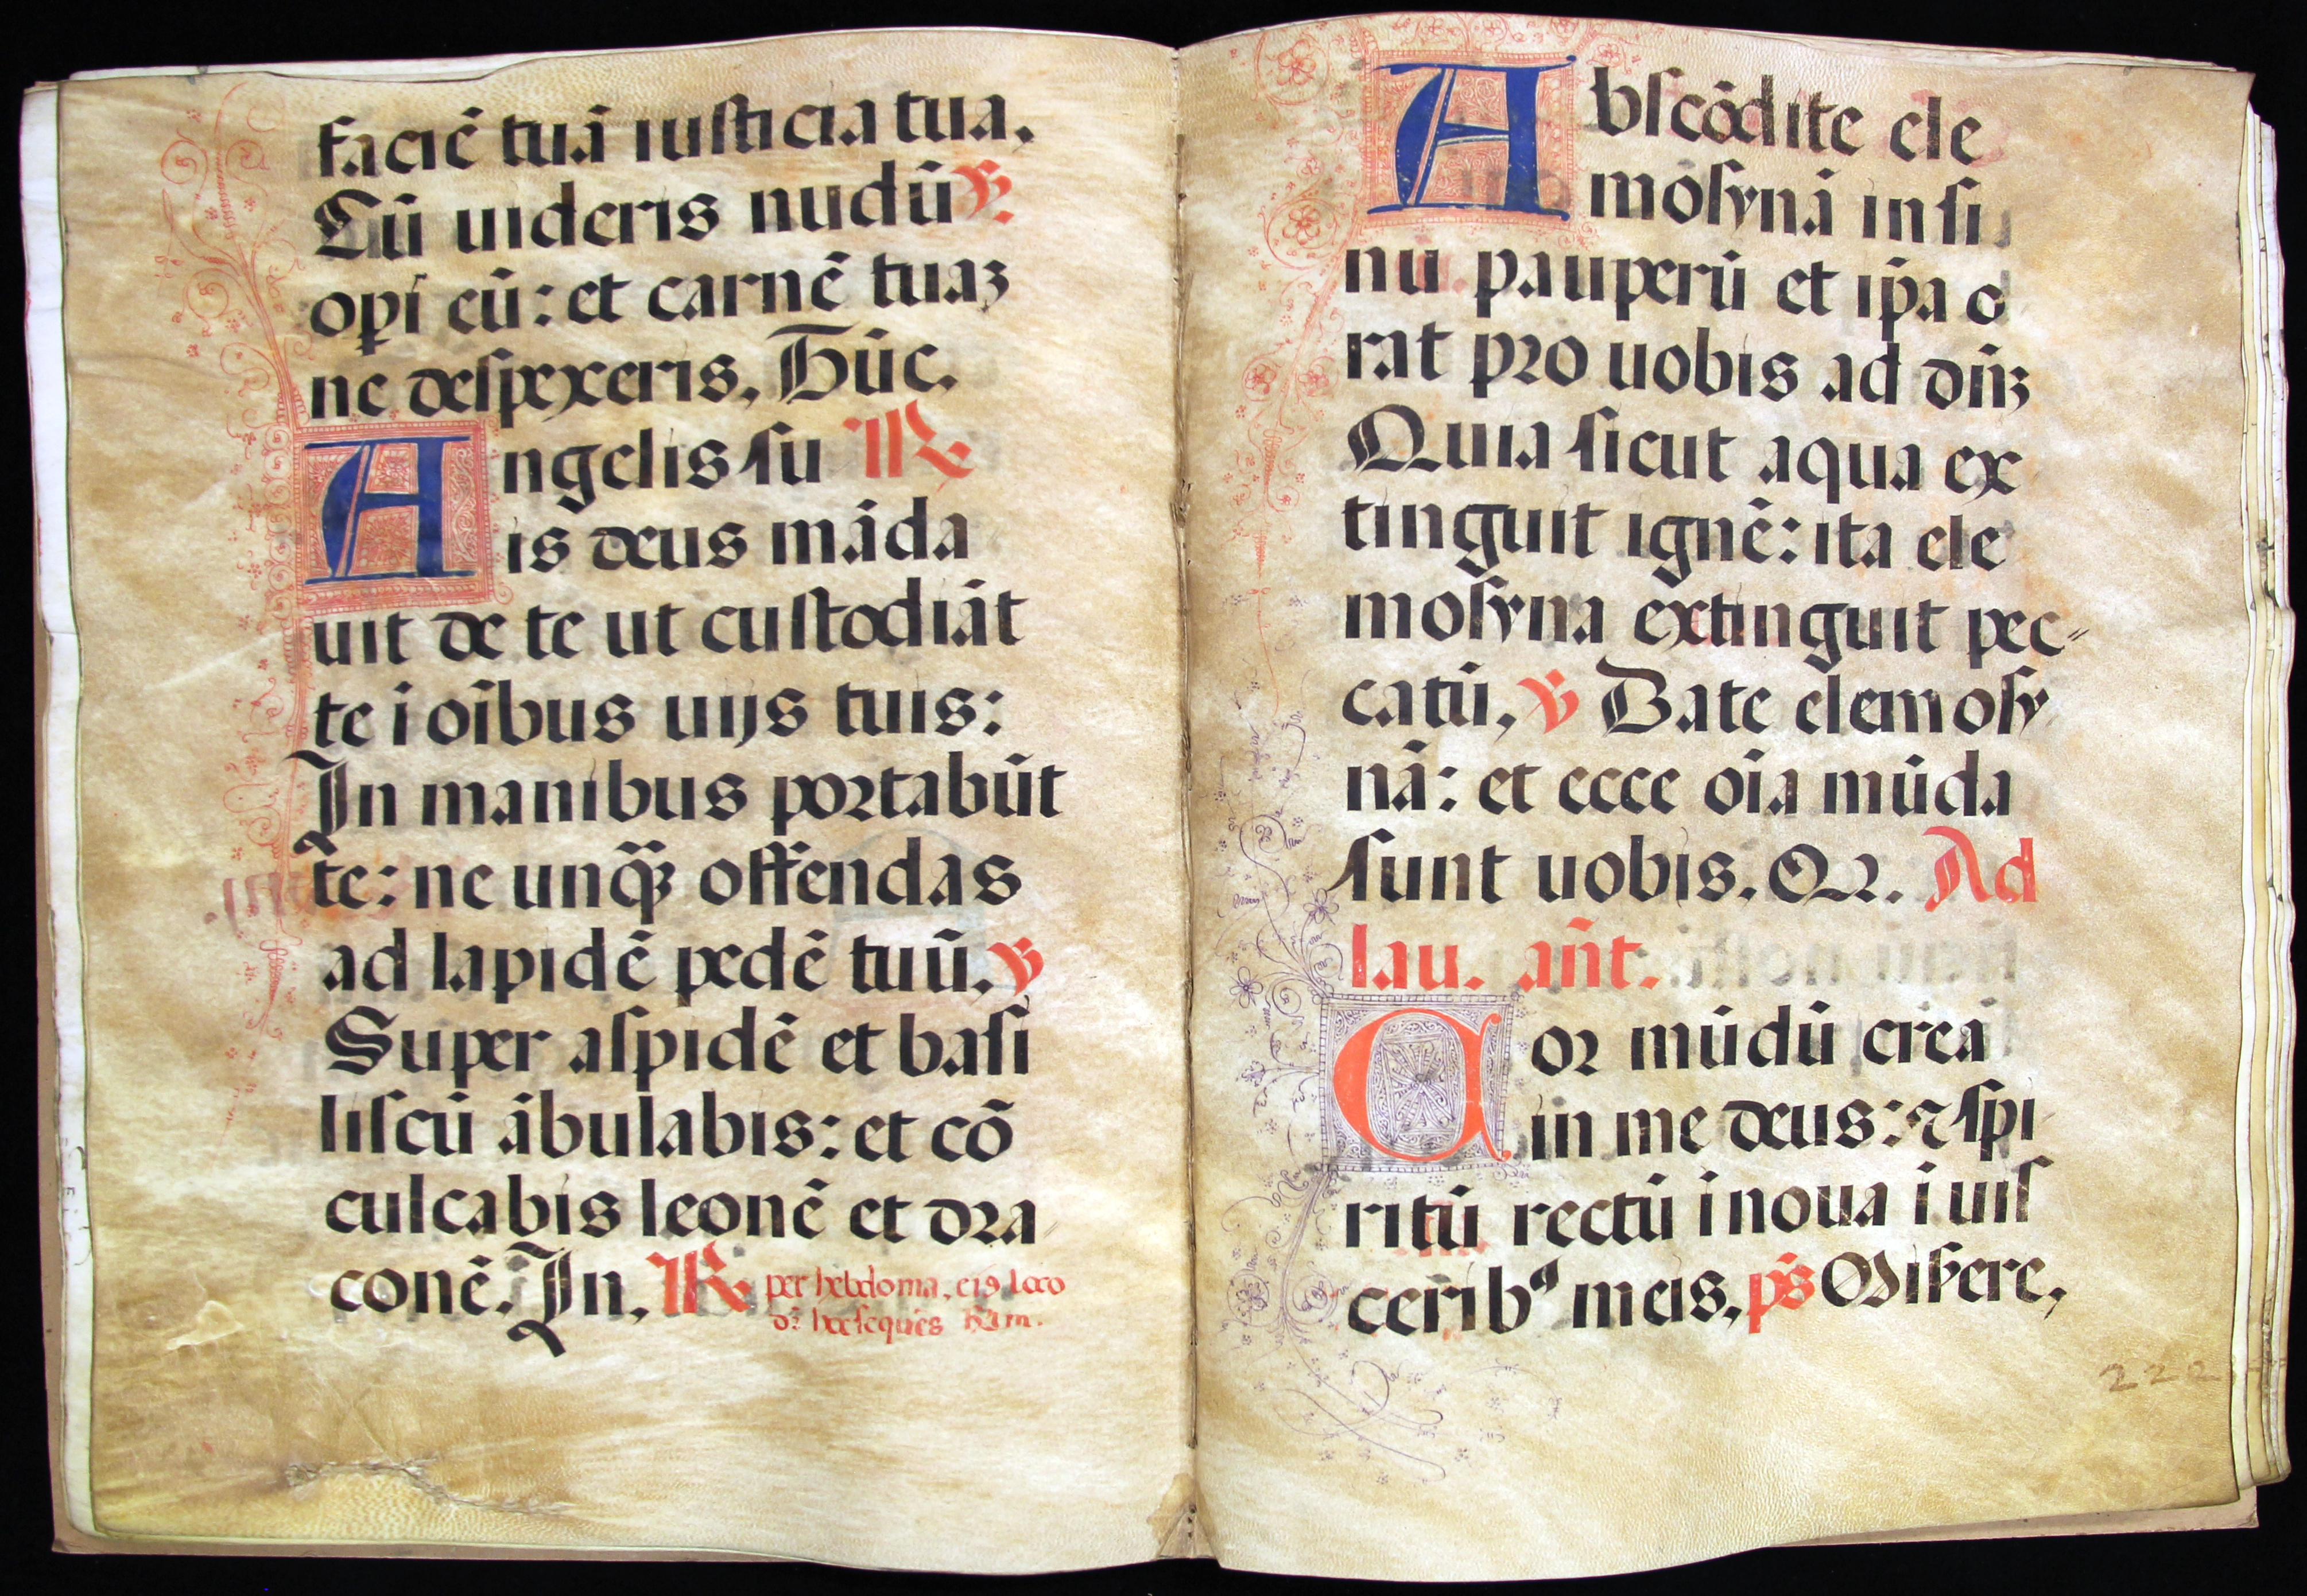 faciē tuā iusticia tua.
Cū uideris nudū ℣.
opi eū: et carnē tuaꝫ
ne despexeris. Hūc.
Angelis su ℟
is deus māda
uit de te ut custodiāt
te i oībus uijs tuis:
In manibus portabūt
te: ne unq̃ꝫ offendas
ad lapidē pedē tuū. ℣
Super aspidē et basi
liscū ābulabis: et cō
culcabis leonē et dra
conē. In. ℟ per hebdoma. eiꝰ loco
Abscōdite ele
mosynā in si
nu pauperū et ip̄a o
rat pro uobis ad dn̄ꝫ
Quia sicut aqua ex
tinguit ignē: ita ele
mosyna extinguit pec-
catū. ℣ Date elemosy
nā: et ecce oīa mūda
sunt uobis. Qr. Ad
lau. an̄t.
Cor mūdū crea
in me deus: ⁊ spi
ritū rectū inoua i uis
cerib⁹ meis. p̄s Miſere.
222